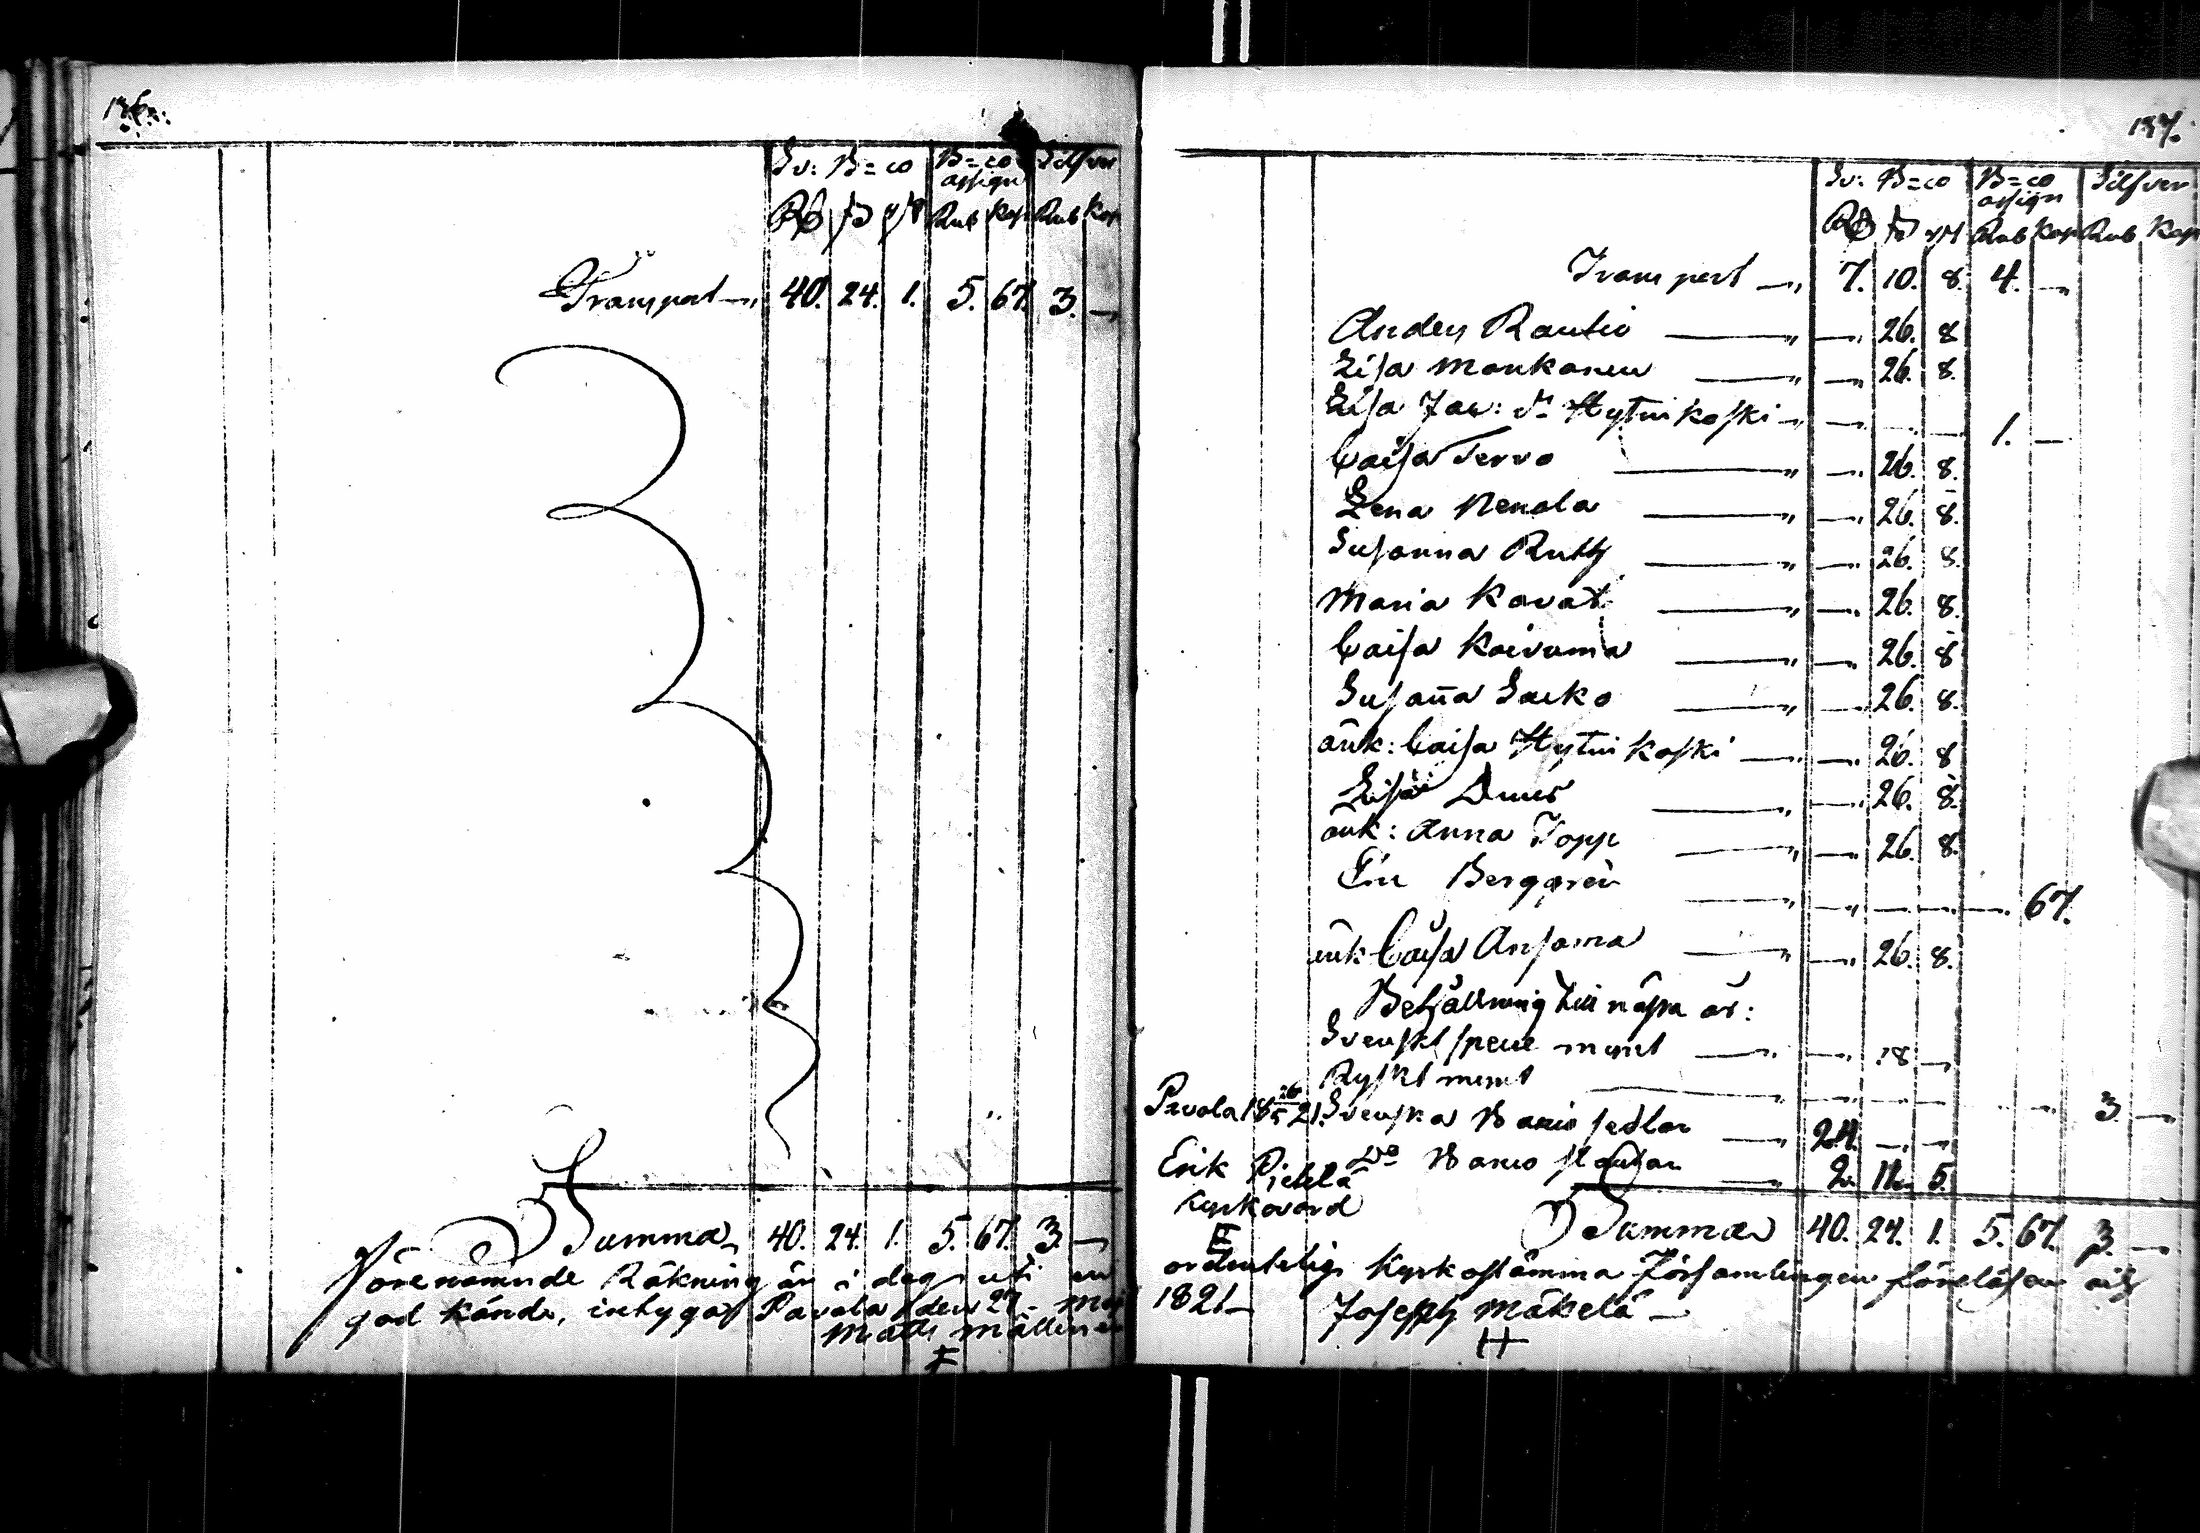 136.
Sv: B=co B=co assign Silfver
Rd ß rst Rub kop Rub kop
Transport 40. 24. 1. 5. 67. 3. —
Summa 40. 24. 1. 5. 67. 3. —
Förenämnde Räkning är i dag uti en
god känd, intygas Pavola den 27 Maj
Matts Mällinen
137.
Sv: B=co B=co assign Silfver
Rd ß rst Rub kop Rub kop
Transport — 7. 10. 8. 4. —
Anders Rautio — — 26. 8
Lisa Maukonen — — 26. 8.
Lisa Jac: dr Hytinkoski — — — — 1. —
Caisa Tervo — — 26. 8.
Lena Nenola — — 26. 8.
Susanna Ruth — — 26. 8.
Maria Kavat — — 26. 8.
Caisa Koivuma — — 26. 8
Susana Sarko — — 26. 8.
änk: Caisa Hytinkoski — — 26. 8
Lisa — — 26. 8.
änk: Anna Topp — — 26. 8.
Berggrén — — — — — 67.
änk Caisa Ansama — — 26. 8.
Behållning till nästa år:
Svenskt mynt — — 18 —
Ryskt mynt — — — — — — 3. —
Pavola 18 26/5 21. Svenska Banco sedlar — 24. — —
Erik Pietilä Do Banco — 2. 11. 5.
kyrkovärd
Summa 40. 24. 1. 5. 67. 3. —
ordentelig Kyrkostämma Församlingen föreläsen och
1821— Joseph Mäkelä —